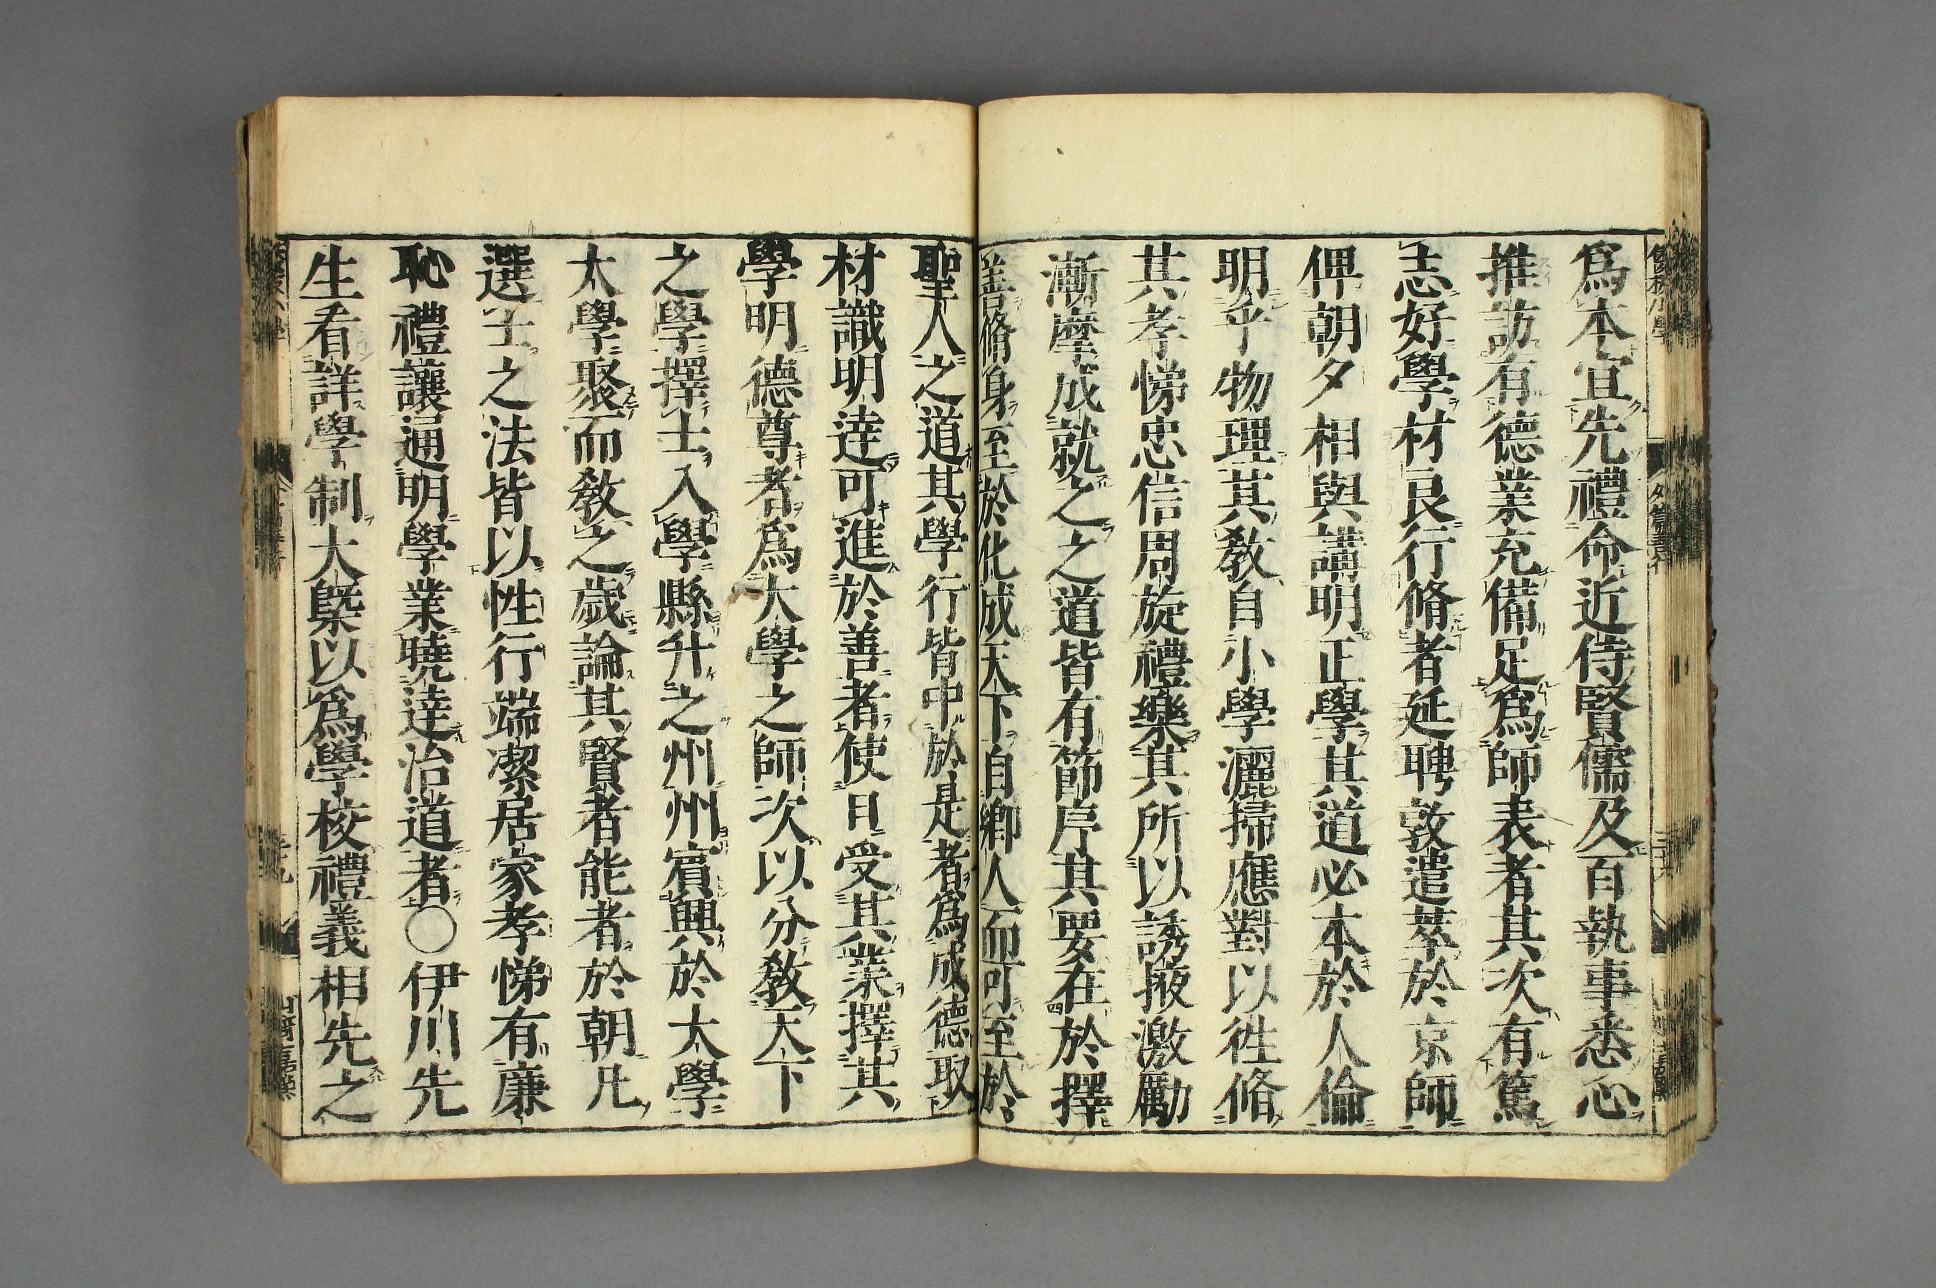 爲本宜先禮命近侍賢儒及百執事悉心
推訪有德業充備足爲師表者其次有篤
志好學材良行脩者延聘敦遣萃於京師
俾朝夕相與講明正學其道必本於人倫
明乎物理其教自小學灑掃應對以徃脩
其孝悌忠信周旋禮樂其所以誘掖激勵
漸摩成就之之道皆有節序其要在於擇
善脩身至於化成天下自鄕人而可至於
聖人之道其學行皆中於是者爲成德取
材識明達可進於善者使日受其業擇其
學明德尊者爲大學之師次以分教天下
之學擇士入學縣升之州州賓興於太學
太學聚而教之歲論其賢者能者於朝凡
選士之法皆以性行端潔居家孝悌有廉
恥禮讓通明學業曉達治道者○伊川先
生看詳學制大槩以爲學校禮義相先之